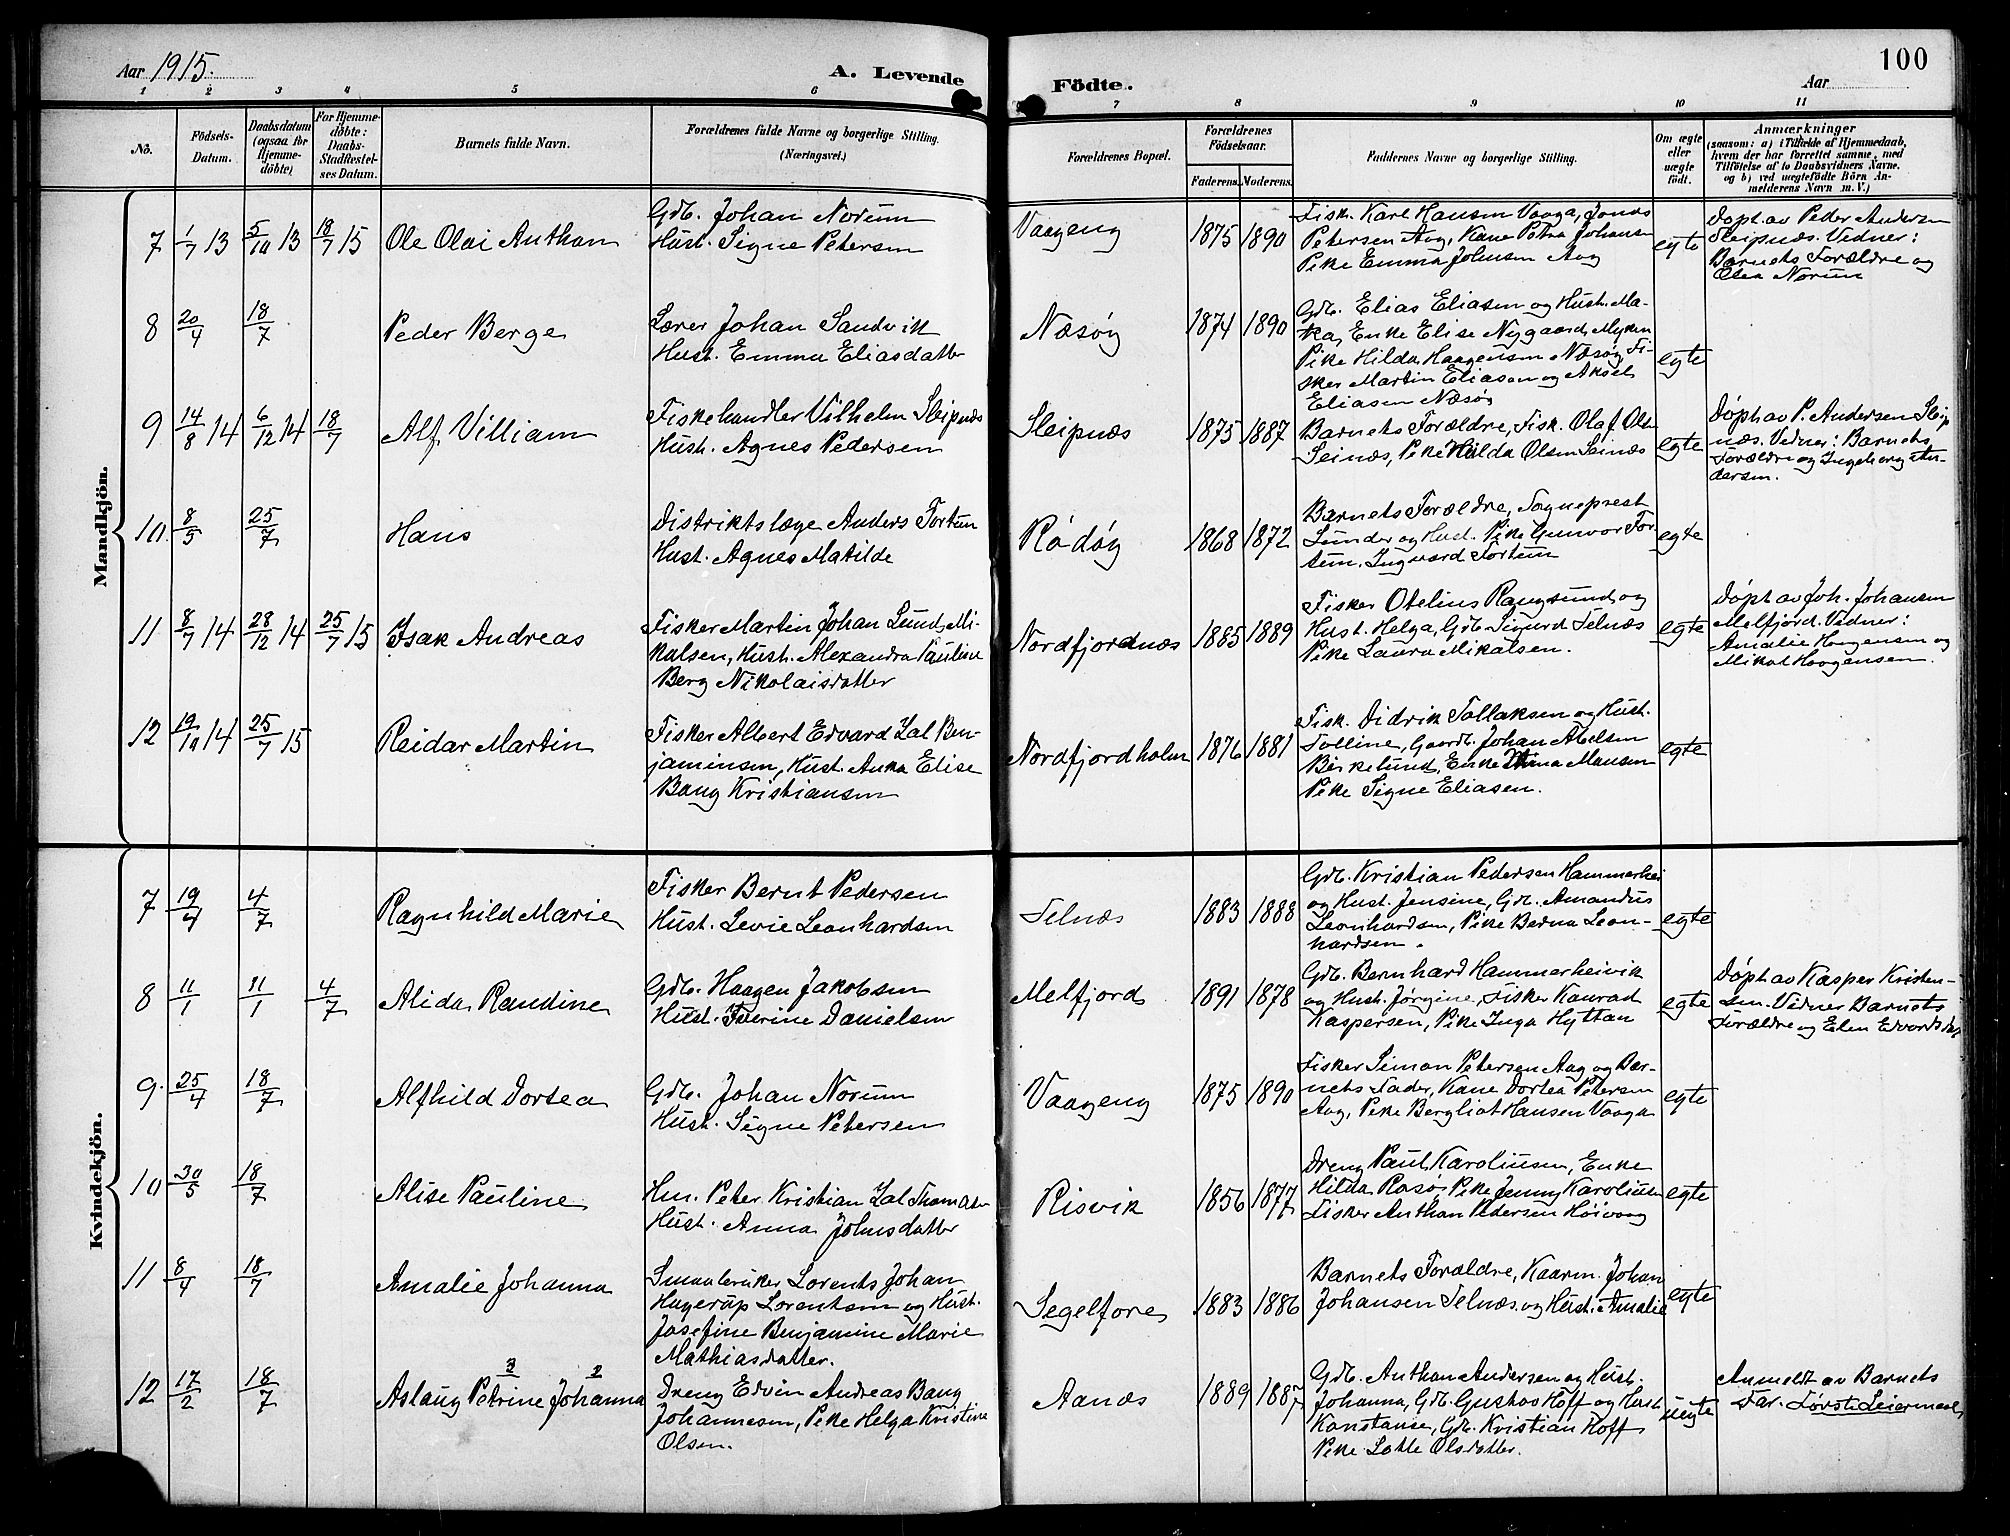 Aar 1915.
A. Levende
Födte.
Aar
100
1 2 3 4 5 6 7 8 9 10 11
No.
Födsels-
Datum.
Daabsdatum
(ogsaa for
Hjemme-
döbte)
For Hjemme-
döbte:
Daabs-
Stadfæstel-
ses Datum.
Barnets fulde Navn.
Forældrenes fulde Navne og borgerlige Stilling.
(Næringsvei.)
Forældrenes Bopæl.
Forældrenes
Födselsaar.
Faderens. Moderens.
Faddernes Navne og borgerlige Stilling.
Om ægte
eller
uægte
født.
Anmærkninger
(saasom: a) i Tilfælde af Hjemmedaab,
hvem der har forrettet samme, med
Tilföielse af to Daabsvidners Navne.
og b) ved uægtefödte Börn An-
melderens Navn m. V.)
Mandkjön.
7 1/7 13 5/10 13 18/7 15
Ole Olai Anthon
Gdb. Johan Norum
Hust. Signe Petersen
Vaageng
1875 1890
Fisk. Karl Hansen Vaaga, Jonas
Petersen Aag, Kone Petra Johansen
Pike Emma Johnsen Aag
egte
Døpt av Peder Andersen
Sleipnæs. Vidner:
Barnets Forældre og
Olea Norum
8 20/4 18/7
Peder Berge
Lærer Johan Sandvik
Hust. Emma Eliasdatter
Næsøy
1874 1890
Gdb. Elias Eliasen og Hust. Ma-
Enke Elise Nygaard Myken
Pike Hilda Haagensen Næsøy, Fi-
sker Martin Eliasen og Aksel
Eliasen Næsøy
egte
9 14/8 14 6/12 14 18/7
Alf Villiam
Fiskehandler Vilhelm Sleipnæs
Hust. Agnes Pedersen
Sleipnæs
1875 1887
Barnets Forældre, Fisk. Olaf Olsen
Seinæs, Pike Hilda Olsen Seinæs
egte
Døpt av P. Andersen Sleip
næs. Vidner: Barnets
Forældre og Ingeborg An-
dersen.
10 8/5 25/7
Hans
Distriktslæge Anders Fortun
Hust. Agnes Matilde
Rødøy
1868 1872
Barnets Forældre, Sogneprest
Sunder og Hust. Pike Gunvor For-
tun. Ingvard Fortun
egte
11 8/7 14 28/12 14 25/7 15
Isak Andreas
Fisker Martin Johan Lund Mi-
kalsen, Hust. Alexandra Pauline
Berg Nikolaisdatter
Nordfjordnæs
1885 1889
Fisker Otelius Rangsund og
Hust. Helga, Gdb. Sigurd Selnæs
Pike Laura Mikalsen.
egte
Døpt av Joh. Johansen
Melfjord. Vidner:
Amalie Haagensen og
Mikal Haagensen.
12 19/10 14 25/7 15
Reidar Martin
Fisker Albert Edvard Zal Ben-
jaminsen, Hust. Anna Elise
Bang Kristiansen
Nordfjordholm
1876 1881
Fisk. Didrik Tollaksen og Hust.
Tolline, Gaardb. Johan Abelsen
Birkelund, Enke Monsen
Pike Signe Eliasen.
egte
Kvindekjön.
7 19/4 4/7
Ragnhild Marie
Fisker Bernt Pedersen
Hust. Levie Leonhardsen
Selnæs
1883 1888
Gdb. Kristian Pedersen Hammerhei
og Hust. Jensine, Gdb. Amandus
Leonhardsen, Pike Berna Leon-
hardsen.
egte
8 11/1 11/1 4/7
Alida Randine
Gdb. Haagen Jakobsen
Hust. Iverine Danielsen
Melfjord
1891 1878
Gdb. Bernhard Hammerheivik
og Hust. Jørgine, Fisker Konrad
Kaspersen, Pike Inga Hyttan
egte
Døpt av Kasper Kristen-
sen. Vidner Barnets
Forældre og Elen Edvardsdat
9. 25/4 18/7
Alfhild Dortea
Gdb. Johan Norum
Hust. Signe Petersen
Vaageng
1875 1890
Fisker Simon Petersen Aag og Bar-
nets Fader, Kone Dortea Petersen
Aag, Pike Bergliot Hansen Vaaga
egte
10 30/5 18/7
Alise Pauline
Hm. Peter Kristian Zal Thomæsen
Hust. Anna Johnsdatter
Risvik
1856 1877
Dreng Paul Karoliusen, Enke
Hilda Rosøy Pike Jenny Karoliusen
Fisker Anthon Pedersen Høivaag
egte
11 8/4 18/7
Amalie Johanna
Smaabruker Lorents Johan
Hagerup Lorentsen og Hust.
Josefine Benjamine Marie
Mathiasdatter.
Segelfore
1883 1886
Barnets Forældre, Kaarm. Johan
Johansen Selnæs og Hust. Amalie
egte
12 17/2 18/7
3 2
Aslaug Petrine Johanna
Dreng Edvin Andreas Bang
Johannesen, Pike Helga Kristine
Olsen.
Aanæs
1889 1887
Gdb. Anthon Andersen og Hust.
Johanna, Gdb. Gustav Hoff og Hust
Konstanse, Gdb. Kristian Hoff
Pike Lotte Olsdatter.
uegte
Anmeldt av Barnets
Far. Første Leiermaal